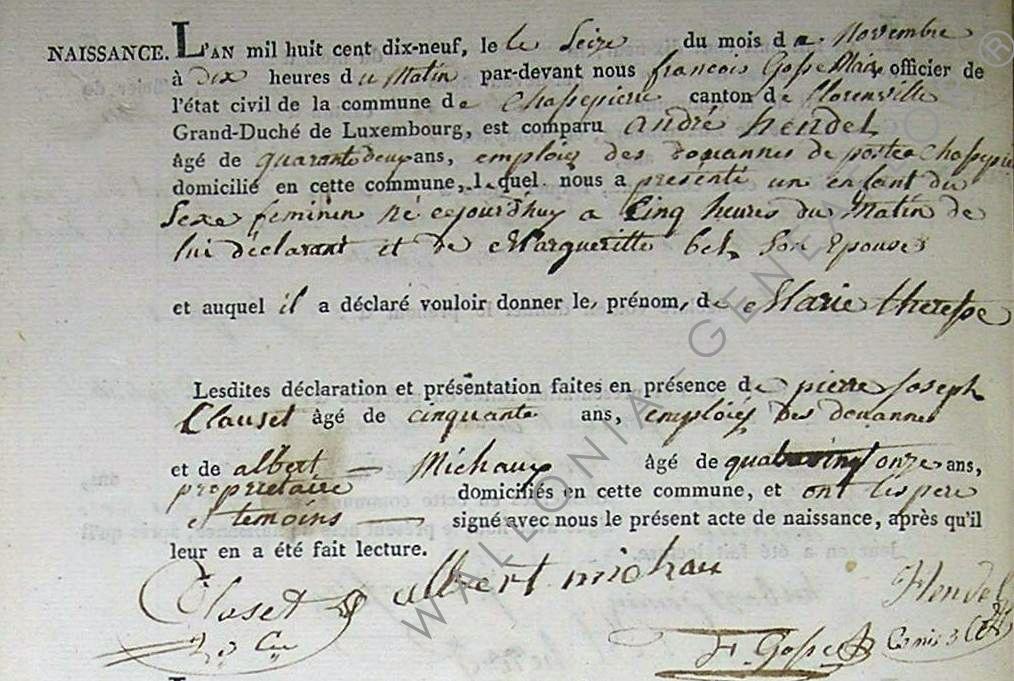 NAISSANCE. L'AN mil huit cent dix-neuf, le le Seize du mois de Novembre
à dix heures du Matin par-devant nous françois Gosse Maire officier de
l'état civil de la commune de Chassepierre canton de florenville
Grand-Duché de Luxembourg, est comparu André hendel
âgé de quarante deux ans, emploiez des Douannes de poste a Chassepierre
domicilié en cette commune, lequel nous a présenté un enfant du
Sexe feminin né cejourdhuy a Cinq heures du Matin de
lui déclarant et de Margueritte bek Son Epouse
et auquel il a déclaré vouloir donner le prénom de Marie theresse
Lesdites déclaration et présentation faites en présence de pierre Joseph
Clauset âgé de cinquante ans, emploiés des douannes
et de albert Michaux âgé de quatrevingt onze ans,
propriétaire domiciliés en cette commune, et ont les pere
et temoins signé avec nous le présent acte de naissance, après qu'il
leur en a été fait lecture.
Closet albert michau Hendel
F. Gosse
WALLONIA GENEALOGIE ®